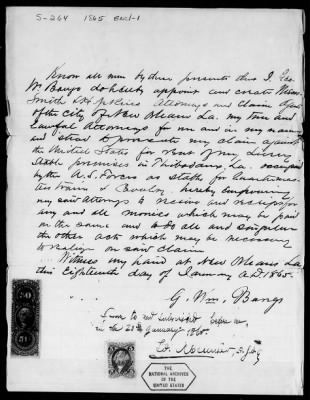 S-264 1865 Encl-1
Know all men by these presents that I Geo
W. Bangs do hereby appoint and create Messrs.
Smith & Hopkins Attorneys and Claim Agts
of the city of New Orleans La. my true and
lawful Attorneys for me and in my name
and stead to prosecute my claim against
the United States for Rent of my Livery
Stable premises in Thibodaux, La. occupied
by the U.S. Forces as stable for Quartermas-
ters trains & Cavalry. hereby empowering
my said Attorneys to receive and receipt for
any and all monies which may be paid
on the same and to do all and
the other acts which may be necessary
to on said claim
Witness my hand at New Orleans La.
this Eighteenth day of January A.D. 1865.
G. Wm. Bangs
Sworn to and subscribed before me,
on the 21st January 1865.
THE
NATIONAL ARCHIVES
OF THE
UNITED STATES